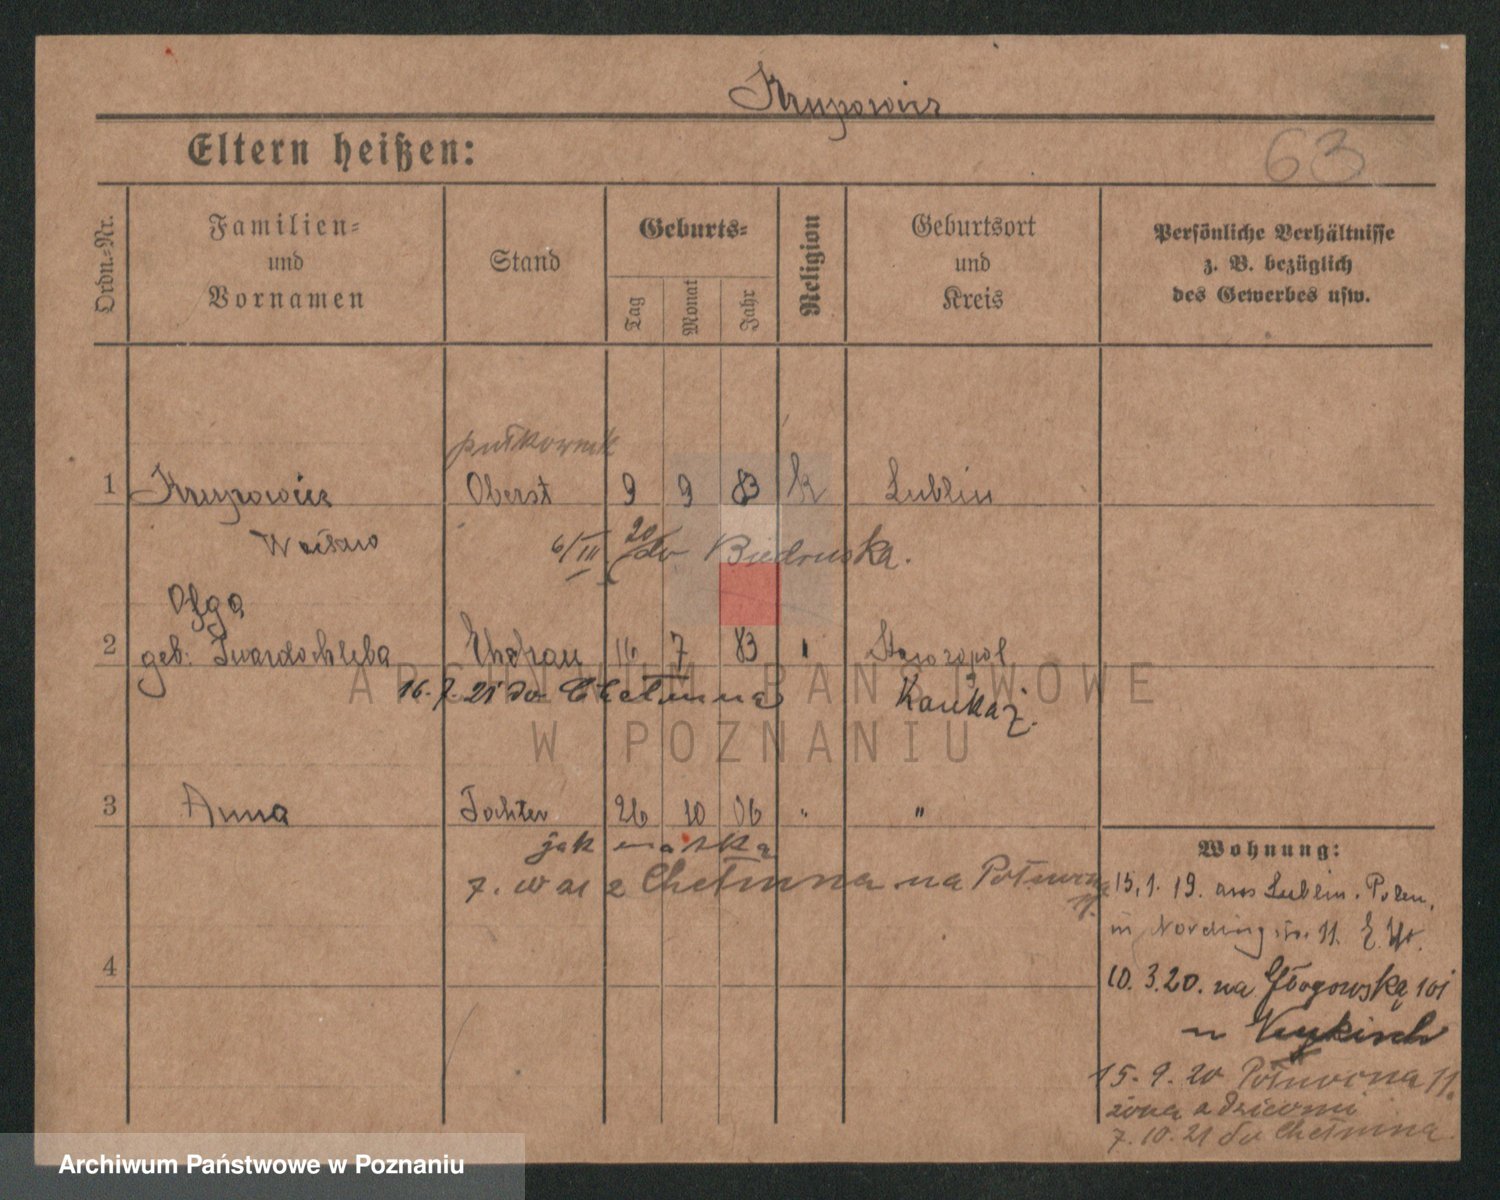 Krupowicz
63
Eltern heißen:
Ordn.-Nr.
Familien-
und
Vornamen
Stand
Geburts-
Tag
Monat
Jahr
Religion
Geburtsort
und
Kreis
Persönliche Verhältnisse
z. B. bezüglich
des Gewerbes usw.
pułkownik
1 Krupowicz Oberst 9 9 83 k Lublin
Wacław
6/III 20 do Biedruska.
Olga
2 geb: Twardochleba Ehefrau 16 7 83 " Stawropol
16.7.21 do Chełmna Kaukaz.
3 Anna Tochter 26 10 06 " "
jak matka
z Chełmna na Północną
11.
4
Wohnung:
15.1.19. aus Lublin. Polen,
in 11
10.3.20. na Głogowską 101
u
15.9.20 Północna 11.
żona z dziećmi
7.10.21 do Chełmna
ARCHIWUM PAŃSTWOWE
W POZNANIU
Archiwum Państwowe w Poznaniu